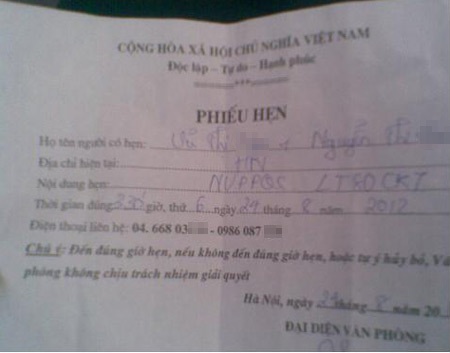 CỘNG HÒA XÃ HỘI CHỦ NGHĨA VIỆT NAM
Độc lập – Tự do – Hạnh phúc
PHIẾU HẸN
Họ tên người có hẹn: Vũ Thị Nguyễn Thị
Địa chỉ hiện tại: HN
Nội dung hẹn:
Thời gian đúng giờ, thứ 6 ngày 24 tháng 8 năm 2012
Điện thoại liên hệ: 04. 668 03 - 0986 087
Chú ý: Đến đúng giờ hẹn, nếu không đến đúng giờ hẹn, hoặc tự ý hủy bỏ, Vă
phòng không chịu trách nhiệm giải quyết
Hà Nội, ngày tháng 8 năm 20
ĐẠI DIỆN VĂN PHÒNG